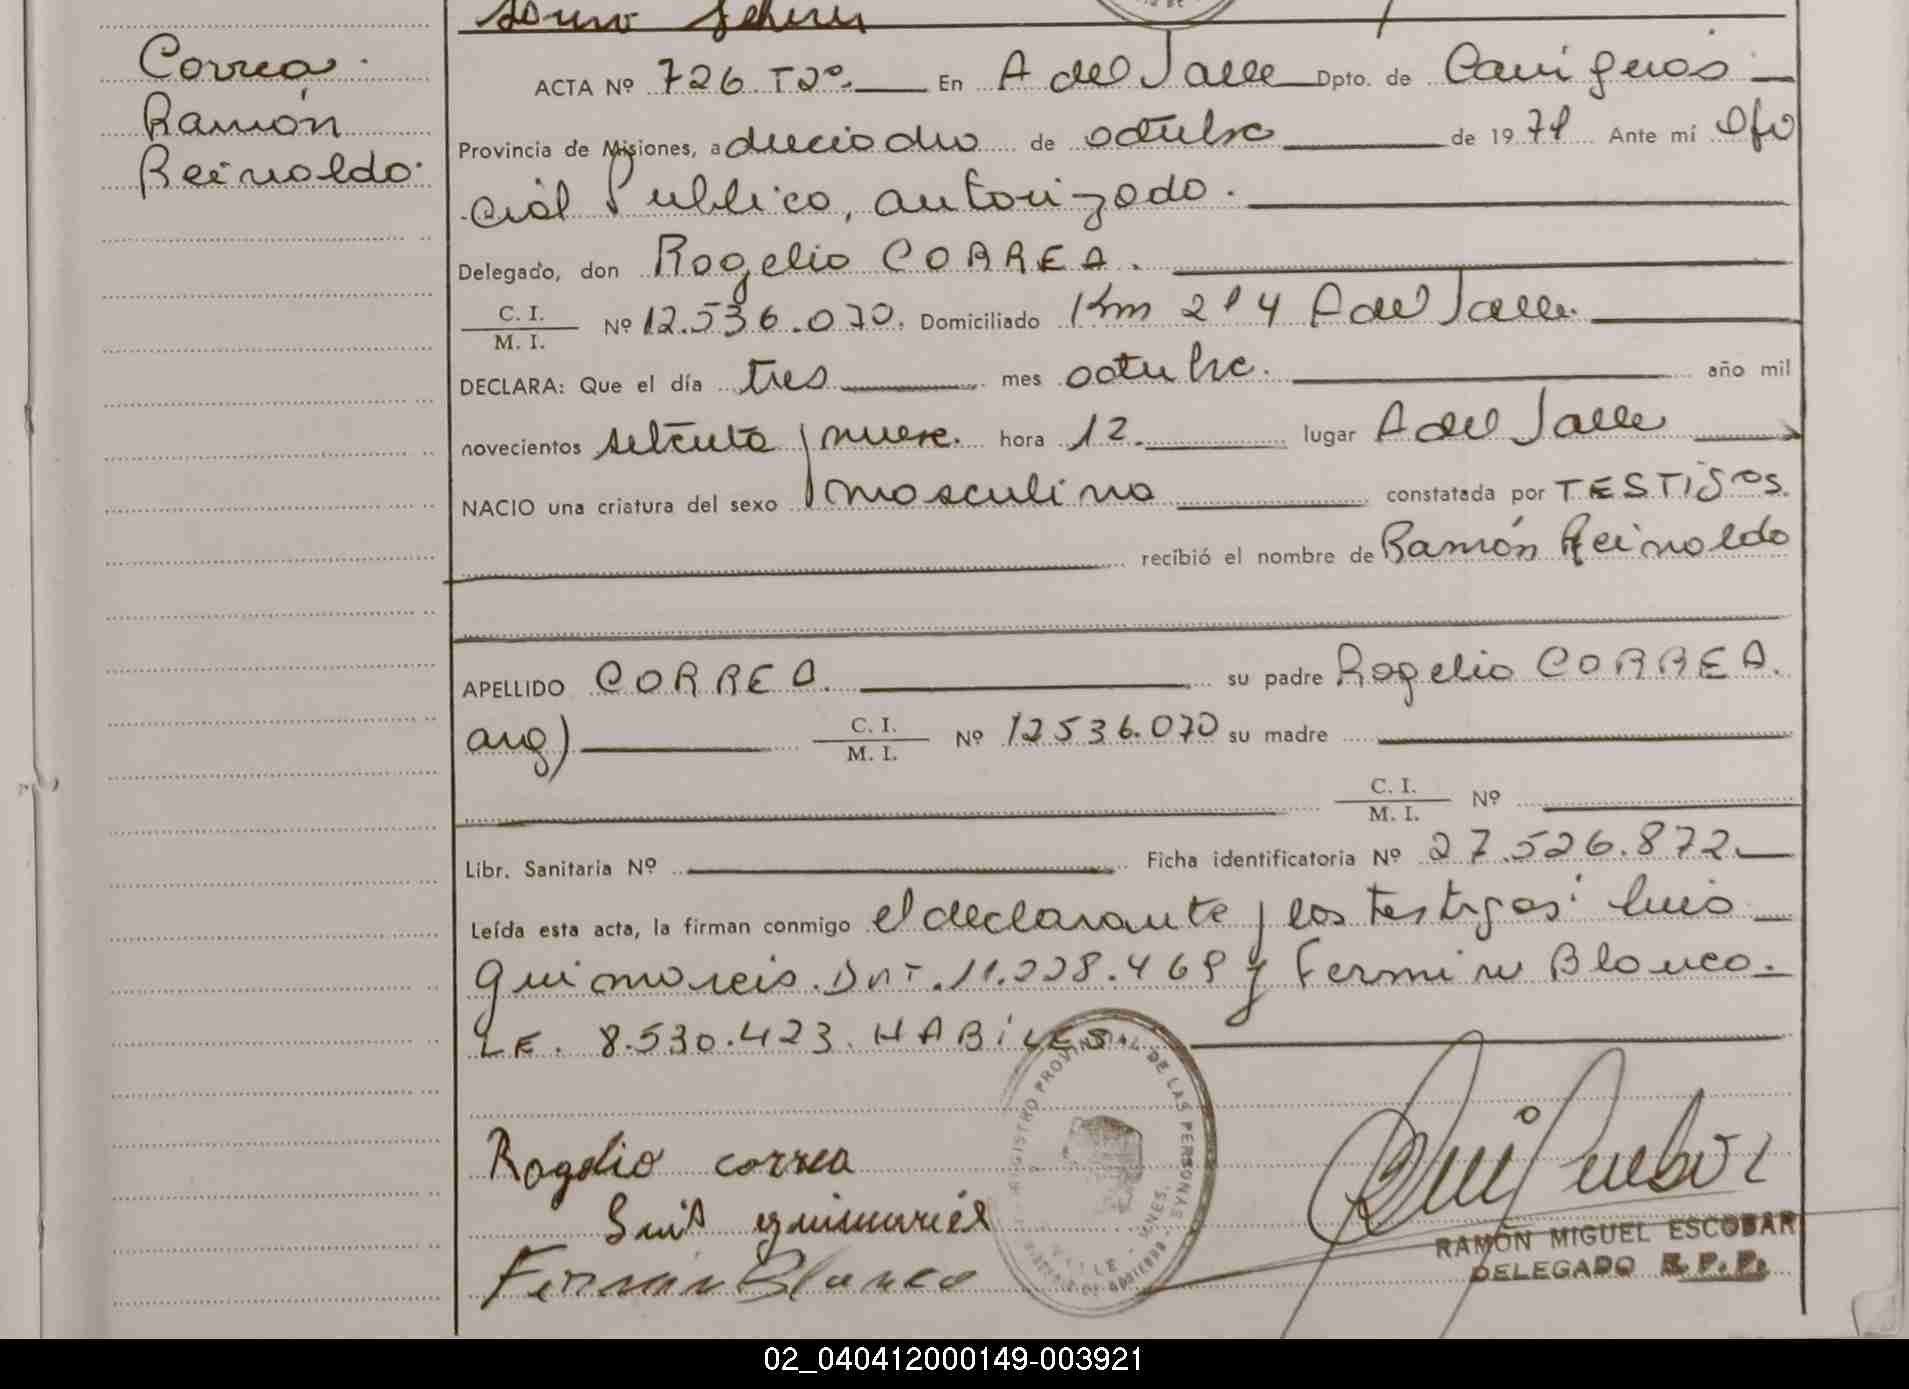 Correa.
Ramón
Reinoldo.
ACTA Nº 726.T2º. En A del Valle Dpto. de Cainguás
Provincia de Misiones, a dieciocho de octubre de 1979 Ante mí Ofi
cial Publico, autorizado.
Delegado, don Rogelio CORREA.
C. I.
M. I. Nº 12.536.070. Domiciliado Km 214 A del Valle.
DECLARA: Que el día tres mes octubre. año mil
novecientos setenta y nueve. hora 12. lugar A del Valle
NACIO una criatura del sexo masculino constatada por TESTIGOS.
recibió el nombre de Ramón Reinoldo
APELLIDO CORREA. su padre Rogelio CORREA.
arg) C. I.
M. I. Nº 12536.070 su madre
C. I.
M. I. Nº
Libr. Sanitaria Nº Ficha identificatoria Nº 27.526.872.
Leída esta acta, la firman conmigo el declarante y los testigos: Luis
Guimareis. DNI. 11.228.469 y Fermin Blanco.
LE. 8.530.423. HABILES
REGISTRO PROVINCIAL DE LAS PERSONAS
VALLE - MNES.
Rogelio correa
Luis guimareis
Fermin Blanco
RAMÓN MIGUEL ESCOBAR
DELEGADO R.P.P.
02_040412000149-003921